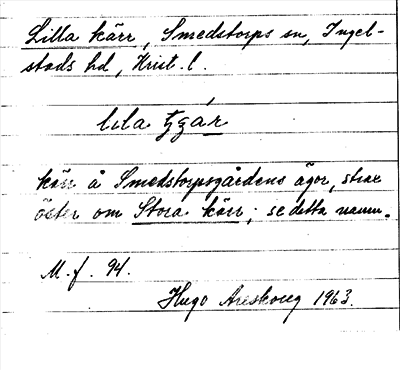 Lilla kärr, Smedstorps sn, Ingel-
stads hd, Krist. l.
lila tzár
kärr å Smedstorpsgårdens ägor, strax
öster om Stora kärr; se detta namn.
M. f. 94.
Hugo Areskoug 1963.